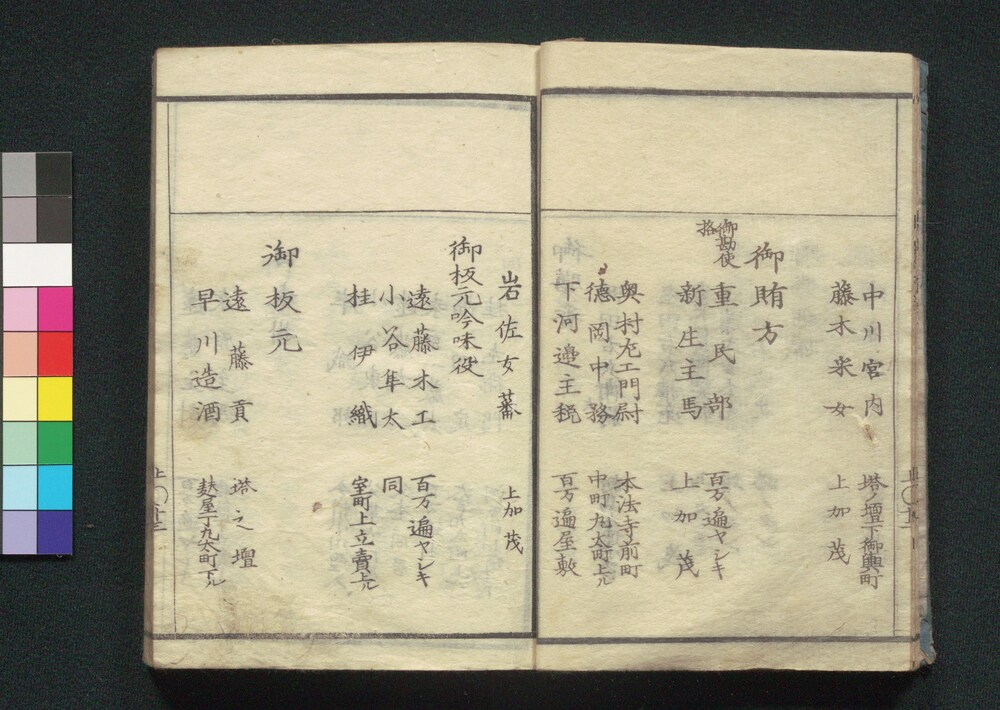 中川宮内 塔ノ壇下御輿町
藤木采女 上加茂
御賄方
御勘使格
重民部 百万遍ヤシキ
新生主馬 上加茂
奥村左エ門尉 本法寺前町
徳岡中務 中町丸太町上ル
下河邉主税 百万遍屋敷
岩佐女蕃 上加茂
御板元吟味役
遠藤木工 百万遍ヤシキ
小谷隼太 同
桂伊織 室町上立賣上ル
御板元
遠藤貢 塔之壇
早川造酒 麸屋丁丸太町下ル
上〇十二